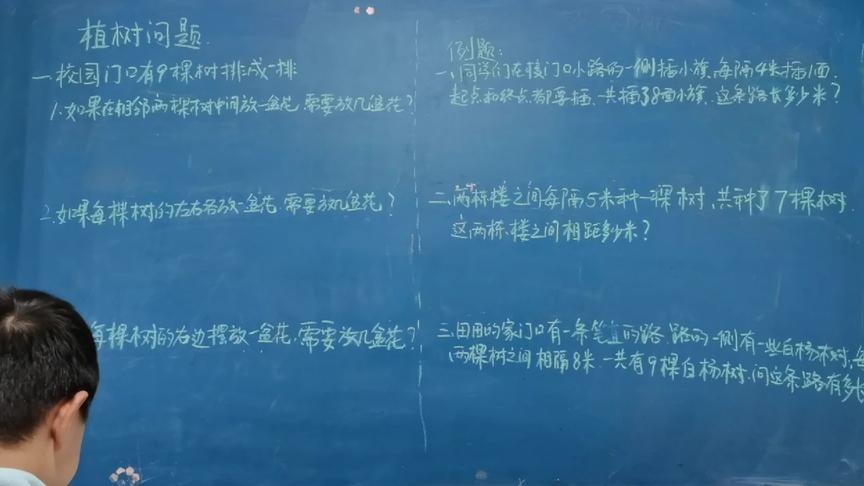 植树问题.
一、校园门口有9棵树排成一排
1.如果在相邻两棵树中间放一盆花,需要放几盆花?
2.如果每棵树的左右各放一盆花,需要放几盆花?
每棵树的右边摆放一盆花,需要放几盆花?
例题:
一、同学们在校门口小路的一侧插小旗,每隔4米插1面,
起点和终点都要插,一共插38面小旗,这条路长多少米?
二、两栋楼之间每隔5米种一棵树,共种了7棵树.
这两栋楼之间相距多少米?
三、田田的家门口有一条笔直的路,路的一侧有一些白杨树,每
两棵树之间相隔8米,一共有9棵白杨树.问这条路有多长